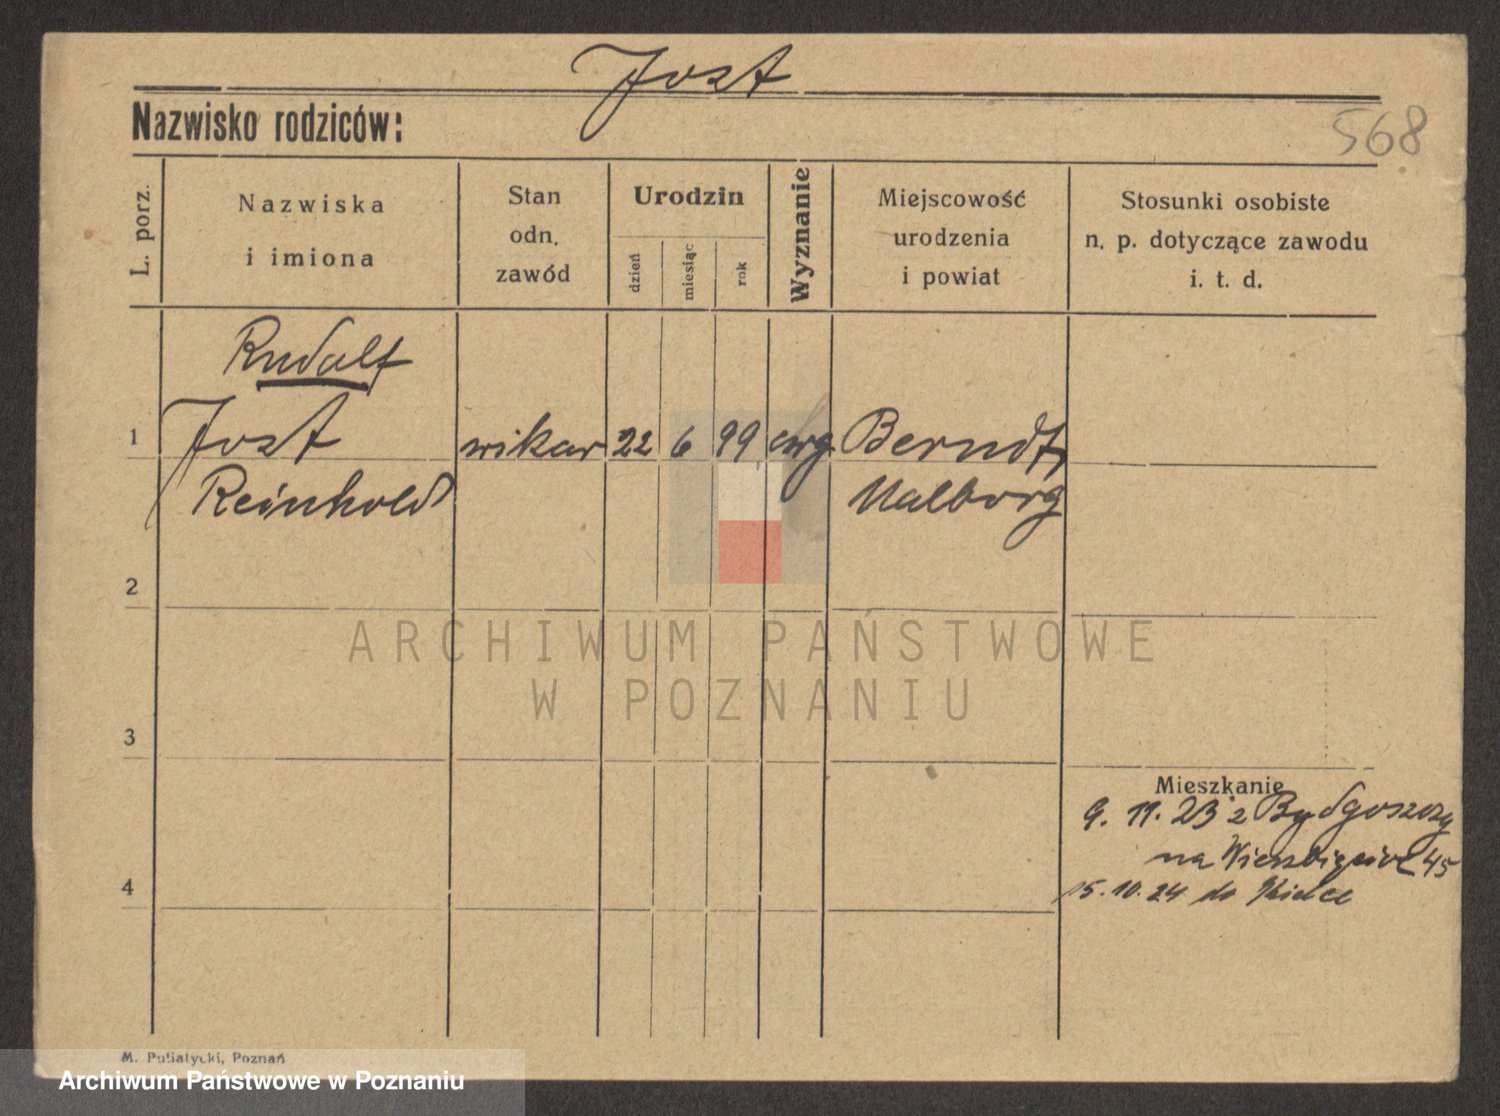 Jost
Nazwisko rodziców:
568
L. porz.
Nazwiska
i imiona
Stan
odn.
zawód
Urodzin
dzień
miesiąc
rok
Wyznanie
Miejscowość
urodzenia
i powiat
Stosunki osobiste
n. p. dotyczące zawodu
i. t. d.
Rudolf
1 Jost wikar 22 6 99 ewg Berndf,
Reinhold Malborg
2
ARCHIWUM PAŃSTWOWE
W POZNANIU
3
Mieszkanie
9. 11. 23 z Bydgoszczy
na 45
4
15. 10. 24 do Kielce
M. Putiatycki, Poznań
Archiwum Państwowe w Poznaniu